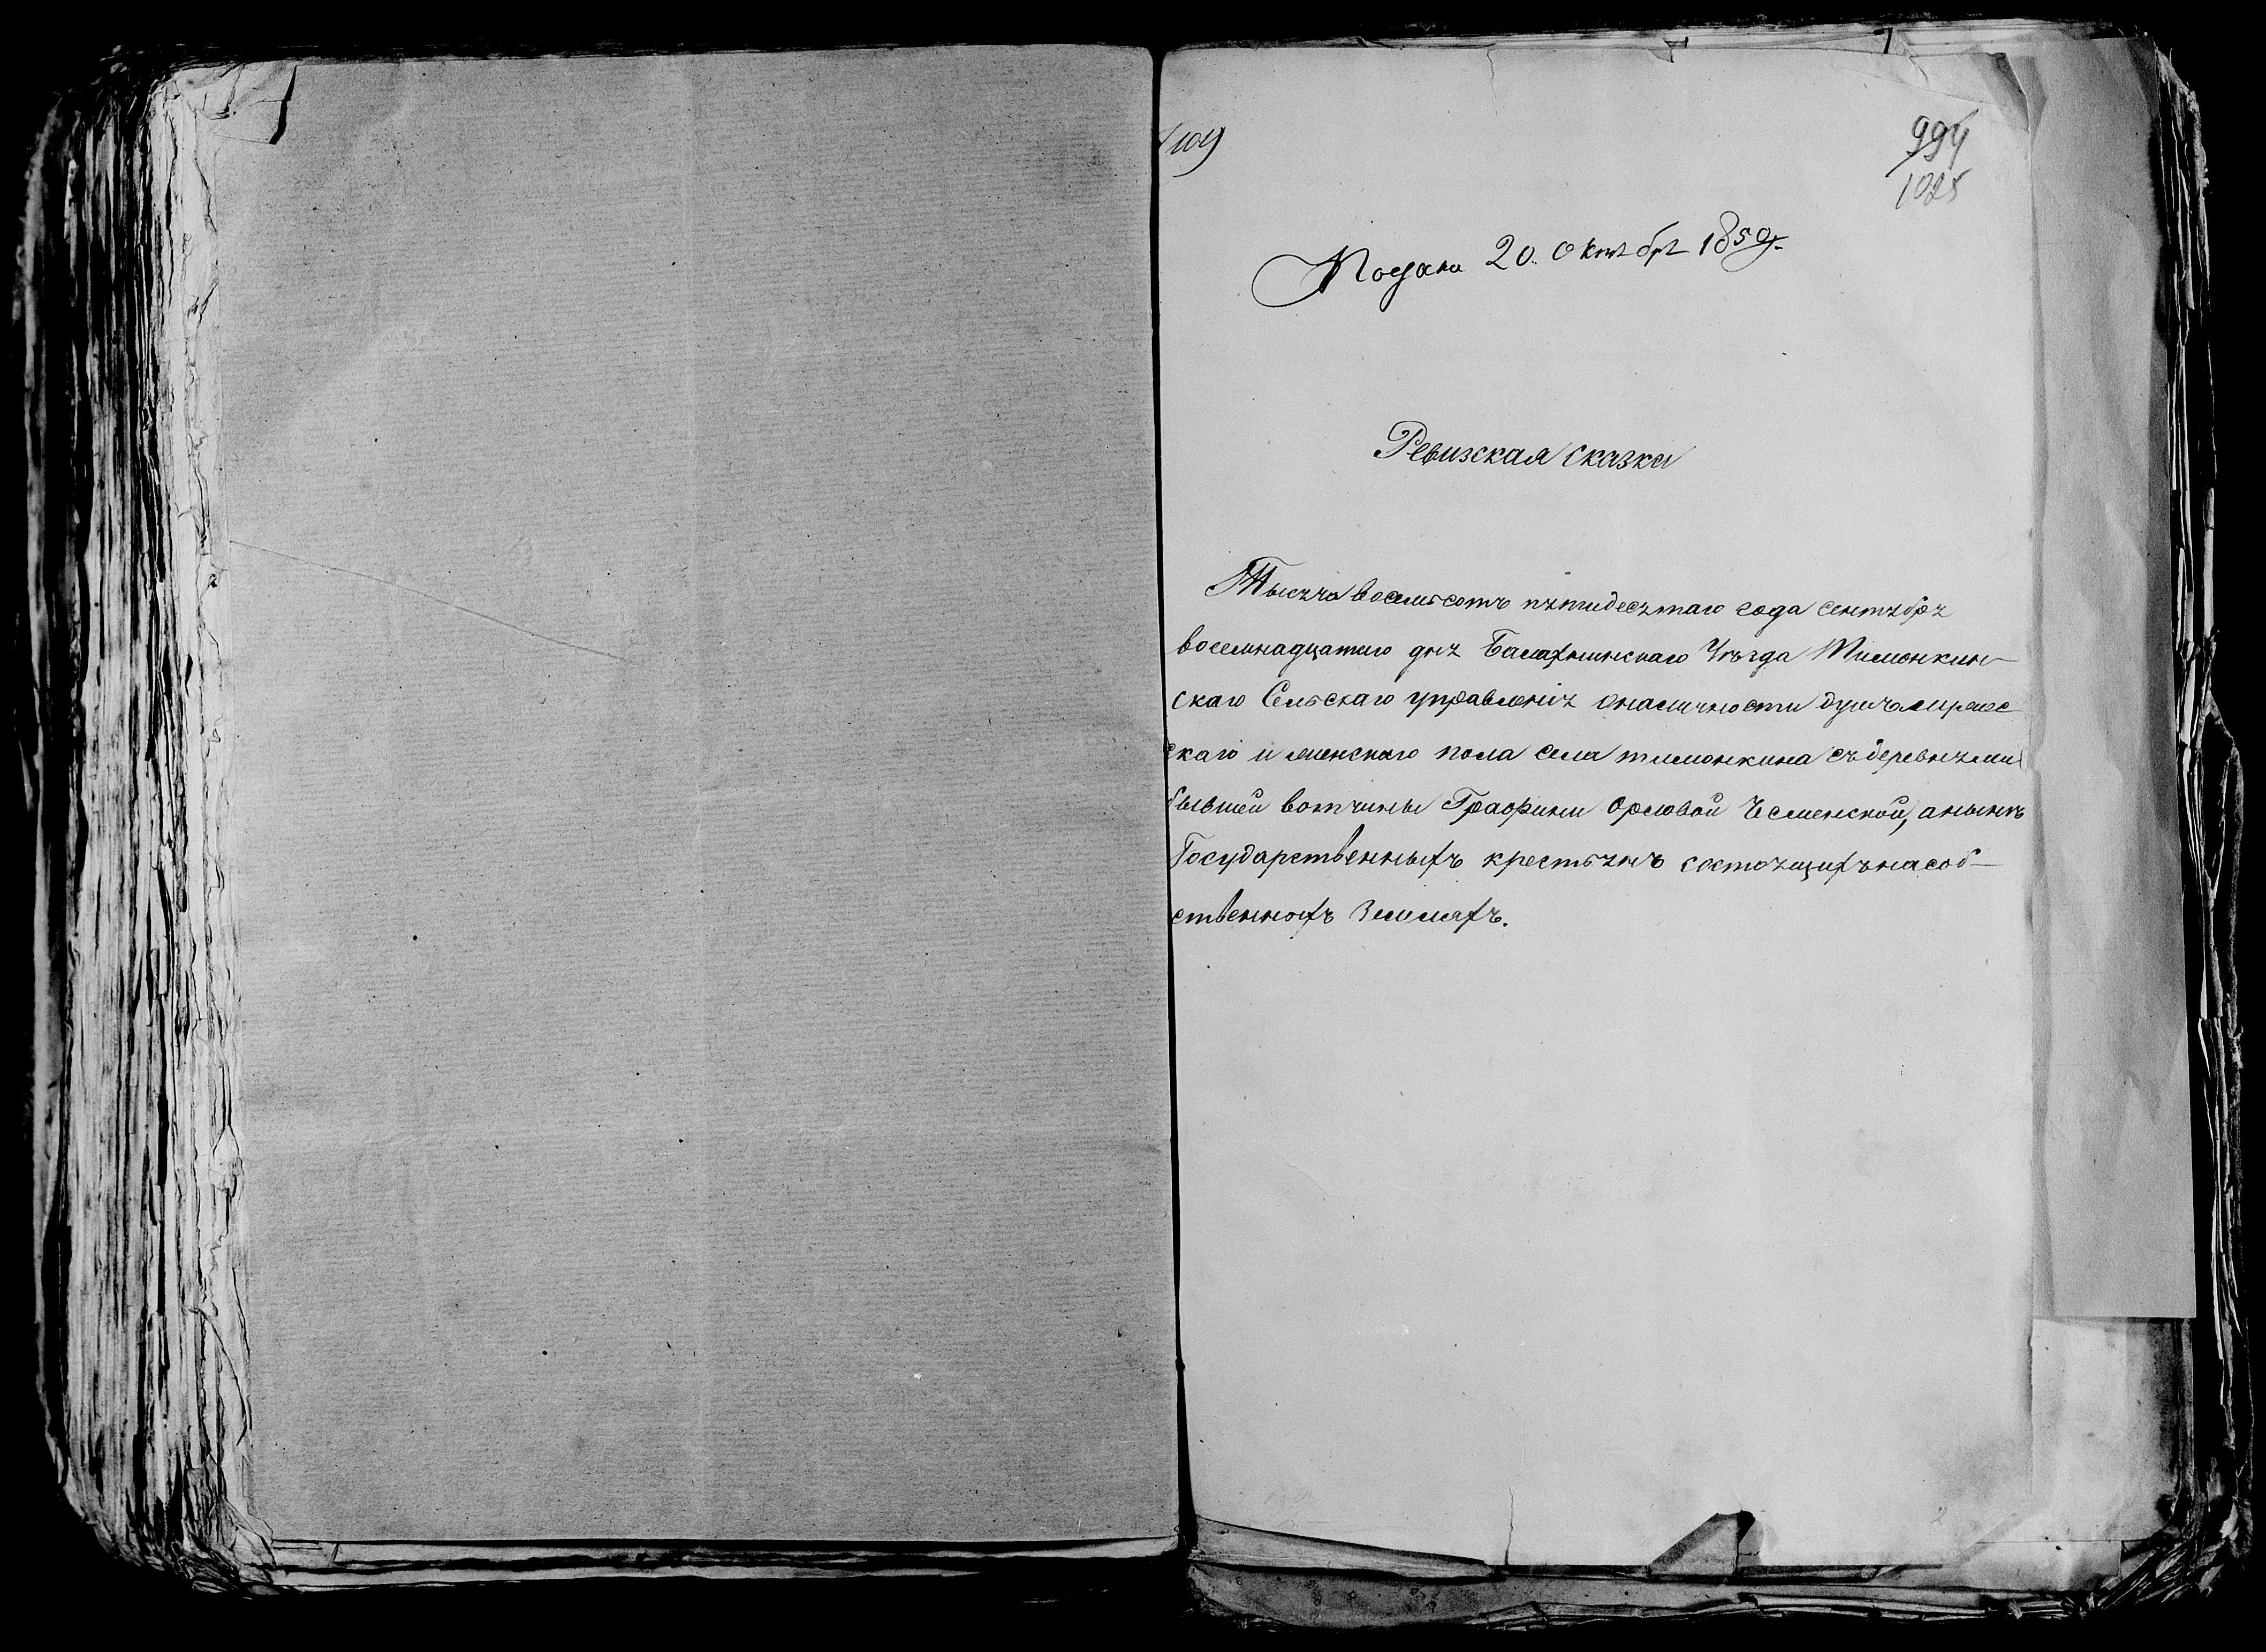 994
1025
Подана 20. Октября 1850 г.
Ревизская сказка
Тысяча восемьсотъ пятидесятаго года сентября
восемнадцатаго дня Балахнинскаго Уѣзда Тимонкин-
скаго Сельскаго управленія о наличности душъ мужес
скаго и женскаго пола села тимонкина съ деревнями
бывшей вотчины Графини Орловой Чесменской, а нынѣ
Государственныхъ крестьянъ состоящихъ на соб-
ственныхъ Земляхъ.